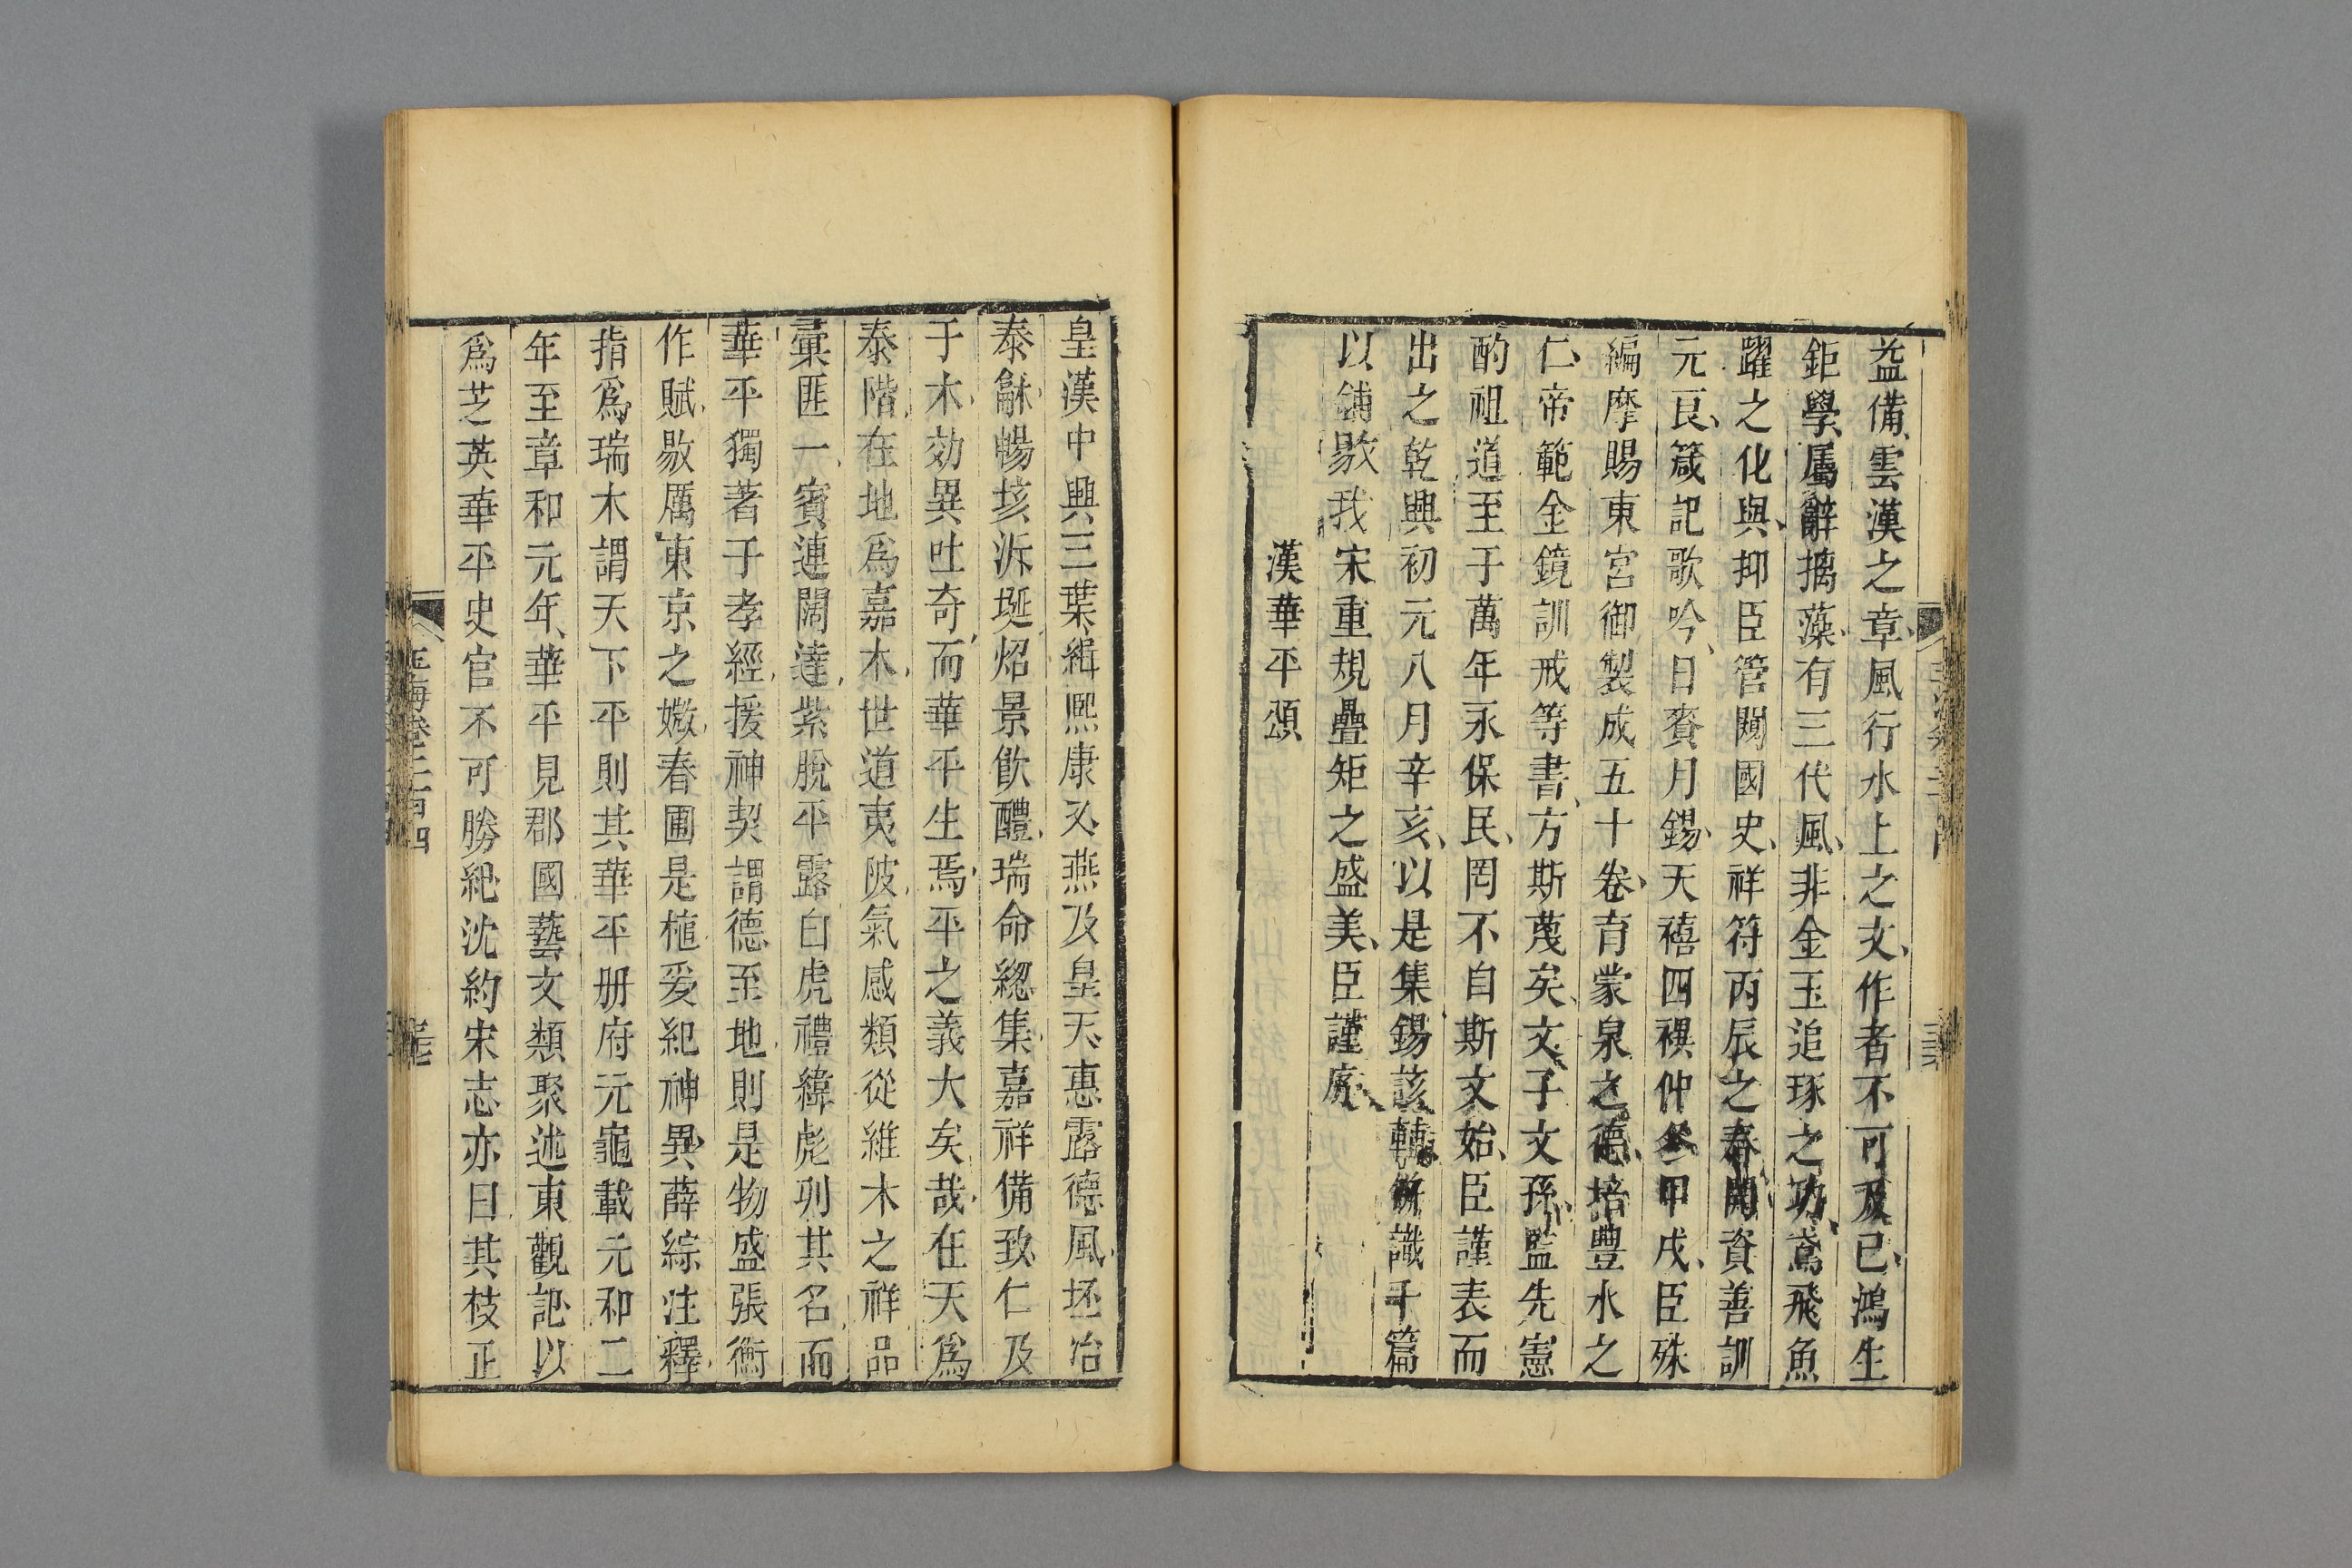 益備雲漢之章風行水上之文作者不可及已鴻生
鉅學屬辭摛藻有三代風非金玉追琢之功鳶飛魚
躍之化與抑臣管闚國史祥符丙辰之春開資善訓
元良箴記歌吟日賚月錫天禧四禩仲冬甲戌臣殊
編摩賜東宮御製成五十卷育蒙泉之德培豐水之
仁帝範金鏡訓戒等書方斯蔑矣文子文孫監先憲
酌祖道至于萬年永保民罔不自斯文始臣謹表而
出之乾興初元八月辛亥以是集錫該輔併識千篇
以鋪敭我宋重規疊矩之盛美臣謹序
漢華平頌
皇漢中興三葉緝熙康乂燕及皇天惠露德風坯冶
泰龢暢垓泝埏炤景飲醴瑞命總集嘉祥備致仁及
于木効異吐奇而華平生焉平之義大矣哉在天爲
泰階在地爲嘉木世道夷陂氣感類從維木之祥品
彚匪一賓連闊達紫脫平露白虎禮緯彪列其名而
華平獨著于孝經援神契謂德至地則是物盛張衡
作賦敭厲東京之媺春圃是植爰紀神異薛綜注釋
指爲瑞木謂天下平則其華平册府元龜載元和二
年至章和元年華平見郡國藝文類聚述東觀記以
爲芝英華平史官不可勝紀沈約宋志亦曰其枝正
玉海卷二百四